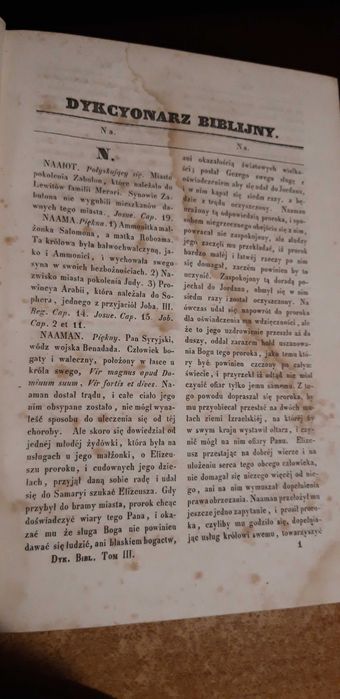 DYKCYONARZ BIBLIJNY.
Na.
Na.
N.
NAAIOT. Połyskujący się. Miasto
pokolenia Zabulon, które należało do
Lewitów familii Merari. Synowie Za-
bulona nie wygubili mieszkańców da-
wnych tego miasta. Josue. Cap. 19.
NAAMA. Piękna. 1) Ammonitka mał-
żonka Salomona, a matka Roboama.
Ta królowa była bałwochwalczynią, ja-
ko i Ammonici, i wychowała swego
syna w swoich bezbożnościach. 2) Na-
zwisko miasta pokolenia Judy. 3) Pro-
wincya Arabii, która należała do So-
phera, jednego z przyjaciół Joba. III.
Reg. Cap. 14. Josue. Cap. 15. Job.
Cap. 2 et 11.
NAAMAN. Piękny. Pan Syryjski,
wódz wojska Benadada. Człowiek bo-
gaty i waleczny, położony w łasce u
króla swego, Vir magnus apud Do-
minum suum, Vir fortis et dives. Na-
aman dostał trądu, i całe ciało jego
nim obsypane zostało, nie mógł wyna-
leść sposobu do uleczenia się od téj
choroby. Ale skoro się dowiedział od
jednéj młodéj żydówki, która była na
usługach u jego małżonki, o Elizeu-
szu proroku, i cudownych jego dzie-
łach, przyjął daną sobie radę i udał
się do Samaryi szukać Elizeusza. Gdy
przybył do bramy miasta, prorok chcąc
doświadczyć wiary tego Pana, i oka-
zać mu że sługa Boga nie powinien
dawać się łudzić, ani blaskiem bogactw,
Dyk. Bibl. Tom III.
ani okazałością światowych wielko-
ści; posłał Gezego swego sługę z
oświadczeniem aby się udał do Jordanu,
i w nim kąpał się siedm razy, a bę-
dzie z trądu oczyszczony. Naaman
urażony tą odpowiedzią proroka, i spo-
sobem niegrzecznego obejścia się z nim,
powracał nie zaspokojony, ale słudzy
jego zaczęli mu przekładać, iż prorok
bardzo małéj i łatwéj rzeczy po nim
się domagał, zaczém powinien by to
uczynić. Zaspokojony tą poradą po-
jechał do Jordanu, obmył się w nim
siedm razy i został oczyszczony. Na-
wówczas udał się napowrót do proroka
dla oświadczenia mu wdzięczności, ale
że to jego uzdrowienie przeszło aż do
duszy, oddał zarazem hołd uszanowa-
nia Boga tego proroka, jako temu któ-
ry być powinien czczony po całym
świecie, i przyrzekł iż odtąd nie miał
czcić ofiar tylko jemu samemu. Z te-
go powodu dopraszał się proroka, by
mu przyobiecał przesłać na dwóch mu-
łach ziemi Izraelskiéj, na któréj by
w swym kraju wystawił ołtarz, i czy-
nić mógł na nim ofiary Panu. Elizeu-
sz przestając na dobréj wierze i na
ułożeniu serca tego obcego człowieka,
nie domagał się niczego więcéj od nie-
go, ani na nim wymuszał dopełnienia
prawa obrzezania. Naaman przełożył mu
jeszcze jedno zapytanie, i prosił proro-
ka, czyliby mu godziło się, dopełnia-
jąc usług królowi swemu, towarzyszyć
1